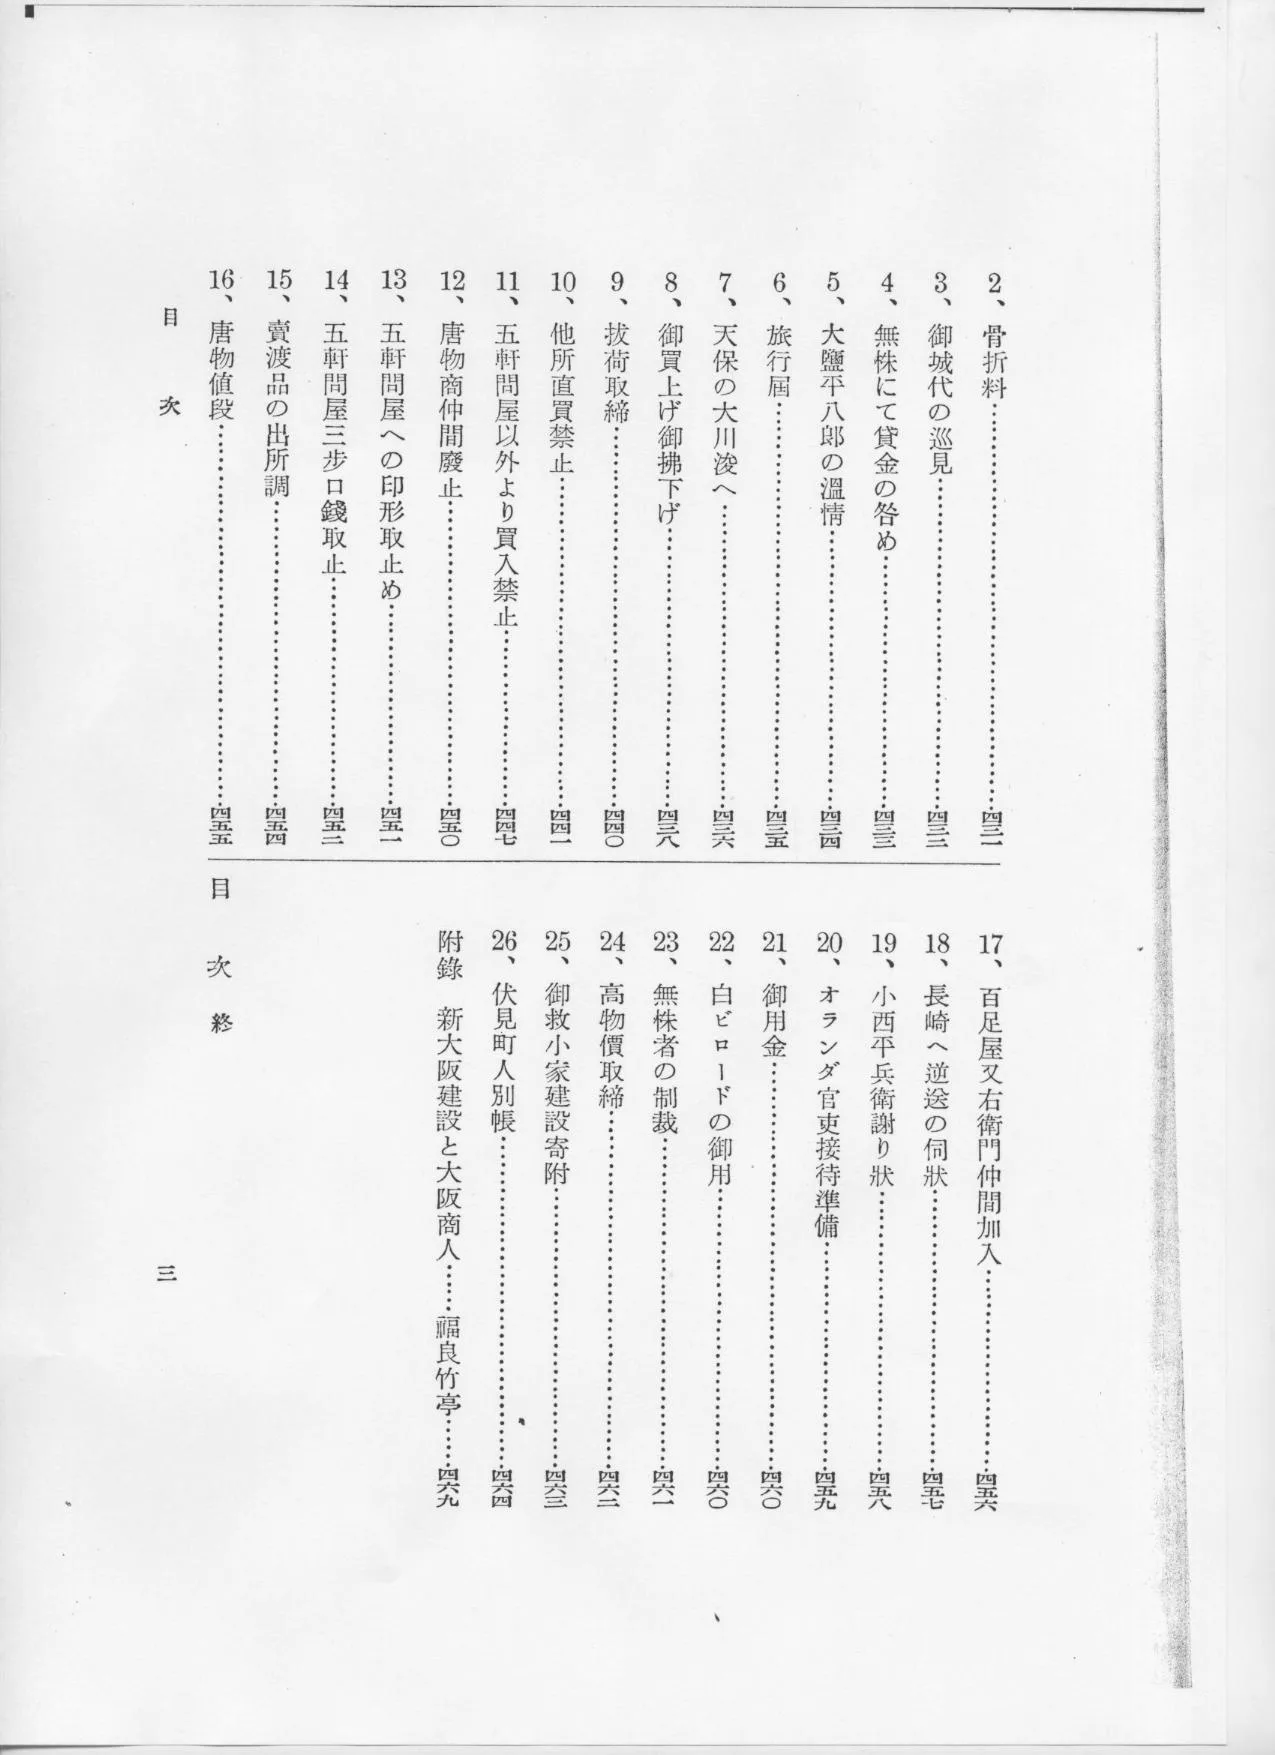 2、骨折料……四三一
3、御城代の巡見……四三二
4、無株にて貸金の咎め……四三三
5、大鹽平八郎の溫情……四三四
6、旅行屆……四三五
7、天保の大川浚へ……四三六
8、御買上げ御拂下げ……四三八
9、拔荷取締……四四〇
10、他所直買禁止……四四一
11、五軒問屋以外より買入禁止……四四七
12、唐物商仲間廢止……四五〇
13、五軒問屋への印形取止め……四五一
14、五軒問屋三步口錢取止……四五二
15、賣渡品の出所調……四五四
16、唐物値段……四五五
17、百足屋又右衛門仲間加入……四五六
18、長崎へ逆送の伺狀……四五七
19、小西平兵衛謝り狀……四五八
20、オランダ官吏接待準備……四五九
21、御用金……四六〇
22、白ビロードの御用……四六〇
23、無株者の制裁……四六一
24、高物價取締……四六二
25、御救小家建設寄附……四六三
26、伏見町人別帳……四六四
附錄　新大阪建設と大阪商人……福良竹亭……四六九
目次終
目次
三